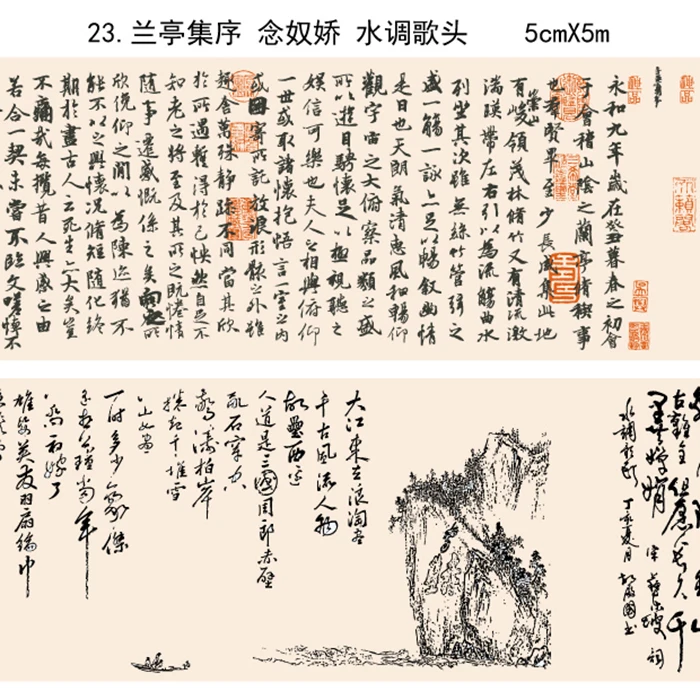 23.兰亭集序 念奴娇 水调歌头 5cmX5m
永和九年歲在癸丑暮春之初會
于會稽山陰之蘭亭脩稧事
也羣賢畢至少長咸集此地
有崇山峻領茂林脩竹又有清流激
湍暎帶左右引以為流觴曲水
列坐其次雖無絲竹管弦之
盛一觴一詠亦足以暢敘幽情
是日也天朗氣清惠風和暢仰
觀宇宙之大俯察品類之盛
所以遊目騁懷足以極視聽之
娛信可樂也夫人之相與俯仰
一世或取諸懷抱悟言一室之內
或因寄所託放浪形骸之外雖
趣舍萬殊靜躁不同當其欣
於所遇蹔得於己快然自足不
知老之將至及其所之既惓情
隨事遷感慨係之矣向之所
欣俛仰之閒以為陳迹猶不
能不以之興懷況脩短隨化終
期於盡古人云死生亦大矣豈
不痛哉每攬昔人興感之由
若合一契未嘗不臨文嗟悼不
古難全但願人長久千
里共嬋娟 宋 蘇東坡 詞
水調歌頭 丁亥夏月
大江東去浪淘盡
千古風流人物
故壘西邊
人道是三國周郎赤壁
亂石穿空
驚濤拍岸
捲起千堆雪
江山如畫
一時多少豪傑
遙想公瑾當年
小喬初嫁了
雄姿英發羽扇綸巾